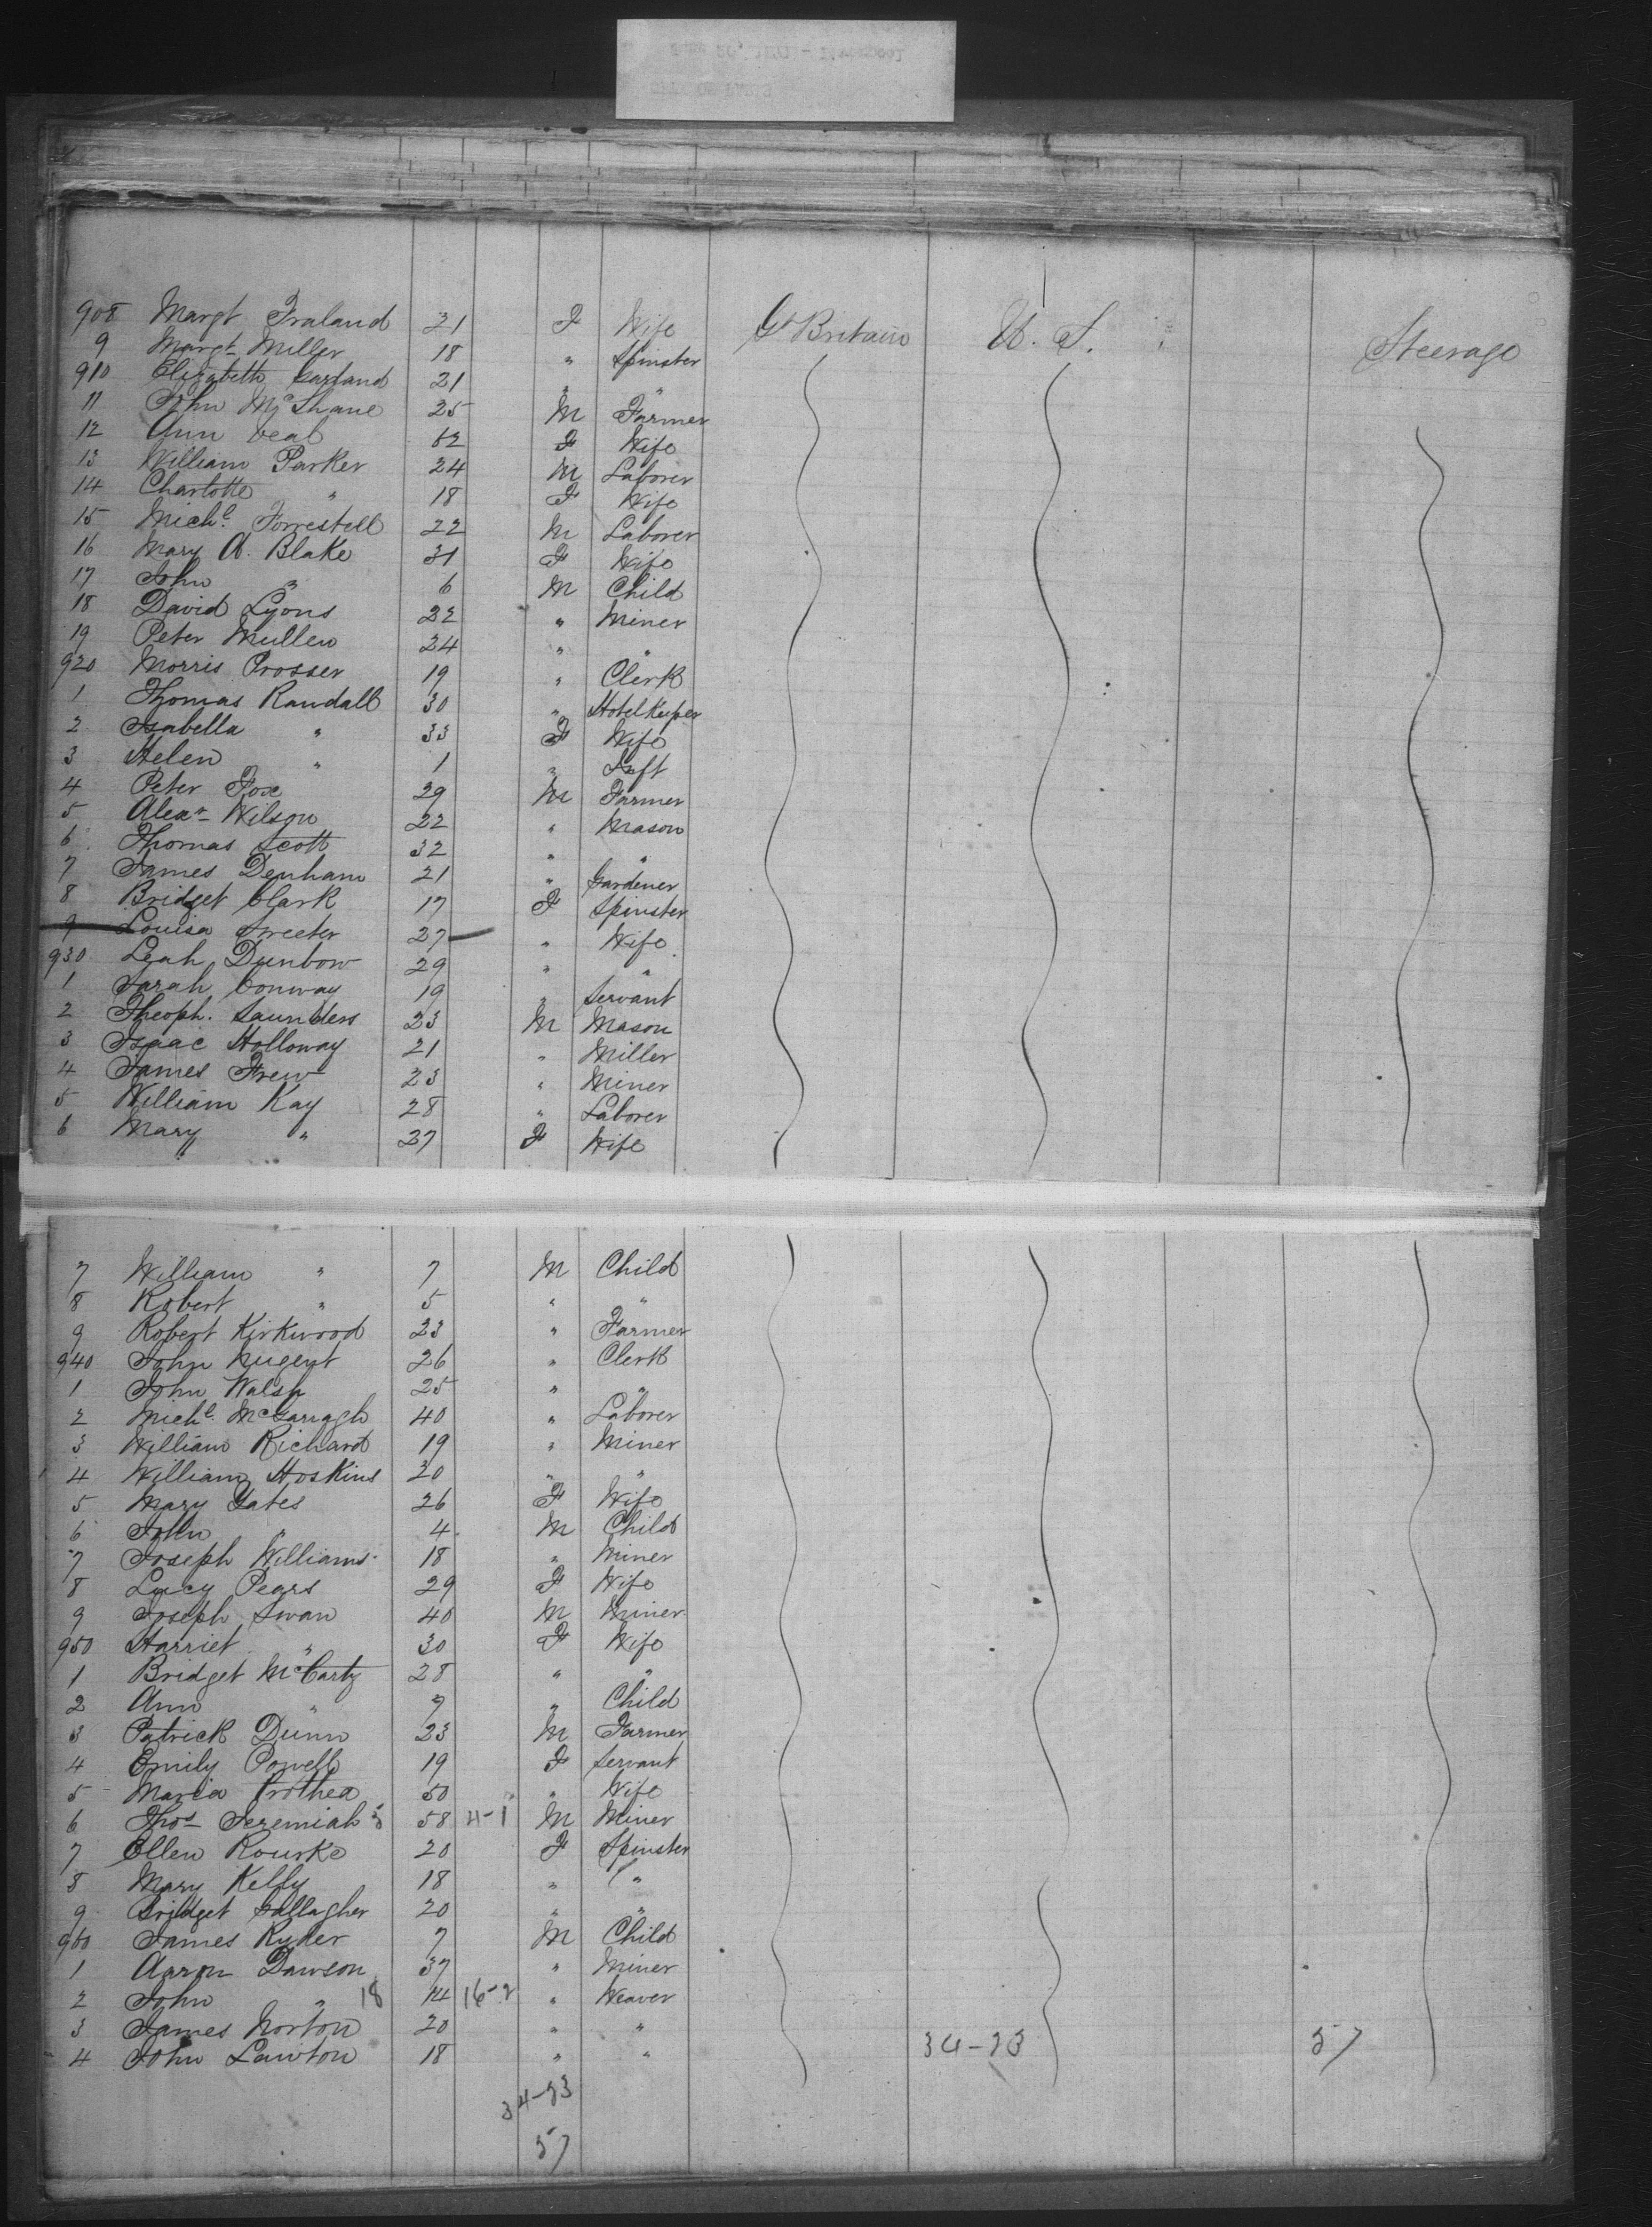 908 Margt Fraland 21 F Wife Gt Britain U. S. Steerage
9 Margt Miller 18 " Spinster
910 Elizabeth Garland 21 " "
11 John McShane 25 M Farmer
12 Ann Veal 62 F Wife
13 William Parker 24 M Laborer
14 Charlotte " 18 F Wife
15 Michl. Forrestell 22 M Laborer
16 Mary A. Blake 31 F Wife
17 John " 6 M Child
18 David Lyons 22 " Miner
19 Peter Mullen 24 " "
920 Morris Prosser 19 " Clerk
1 Thomas Randall 30 " Hotelkeeper
2 Isabella " 33 F Wife
3 Helen " 1 " Inft
4 Peter Fox 29 M Farmer
5 Alexr Wilson 22 " Mason
6 Thomas Scott 32 " "
7 James Denham 21 " Gardener
8 Bridget Clark 17 F Spinster
9 Louisa Streeter 27 " Wife
930 Leah Dunbow 29 " "
1 Sarah Conway 19 " Servant
2 Theoph. Saunders 23 M Mason
3 Isaac Holloway 21 " Miller
4 James Frew 23 " Miner
5 William Kay 28 " Laborer
6 Mary " 27 F Wife
7 William " 7 M Child
8 Robert " 5 " "
9 Robert Kirkwood 23 " Farmer
940 John Nugent 26 " Clerk
1 John Walsh 25 " "
2 Michl. McGarragh 40 " Laborer
3 William Richard 19 " Miner
4 William Hoskins 20 " "
5 Mary Yates 26 F Wife
6 John " 4 M Child
7 Joseph Williams 18 " Miner
8 Lucy Pears 29 F Wife
9 Joseph Swan 40 M Miner
950 Harriet " 30 F Wife
1 Bridget McCarty 28 " "
2 Ann " 7 " Child
3 Patrick Dunn 23 M Farmer
4 Emily Powell 19 F Servant
5 Maria Prothea 50 " Wife
6 Thos Jeremiah 58 4-1 M Miner
7 Ellen Rourke 20 F Spinster
8 Mary Kelly 18 " "
9 Bridget Gallagher 20 " "
960 James Ryder 7 M Child
1 Aaron Dawson 37 " Miner
2 John " 18 14 16-2 " Weaver
3 James Norton 20 " "
4 John Lawton 18 " " 34-23 57
34-23
57